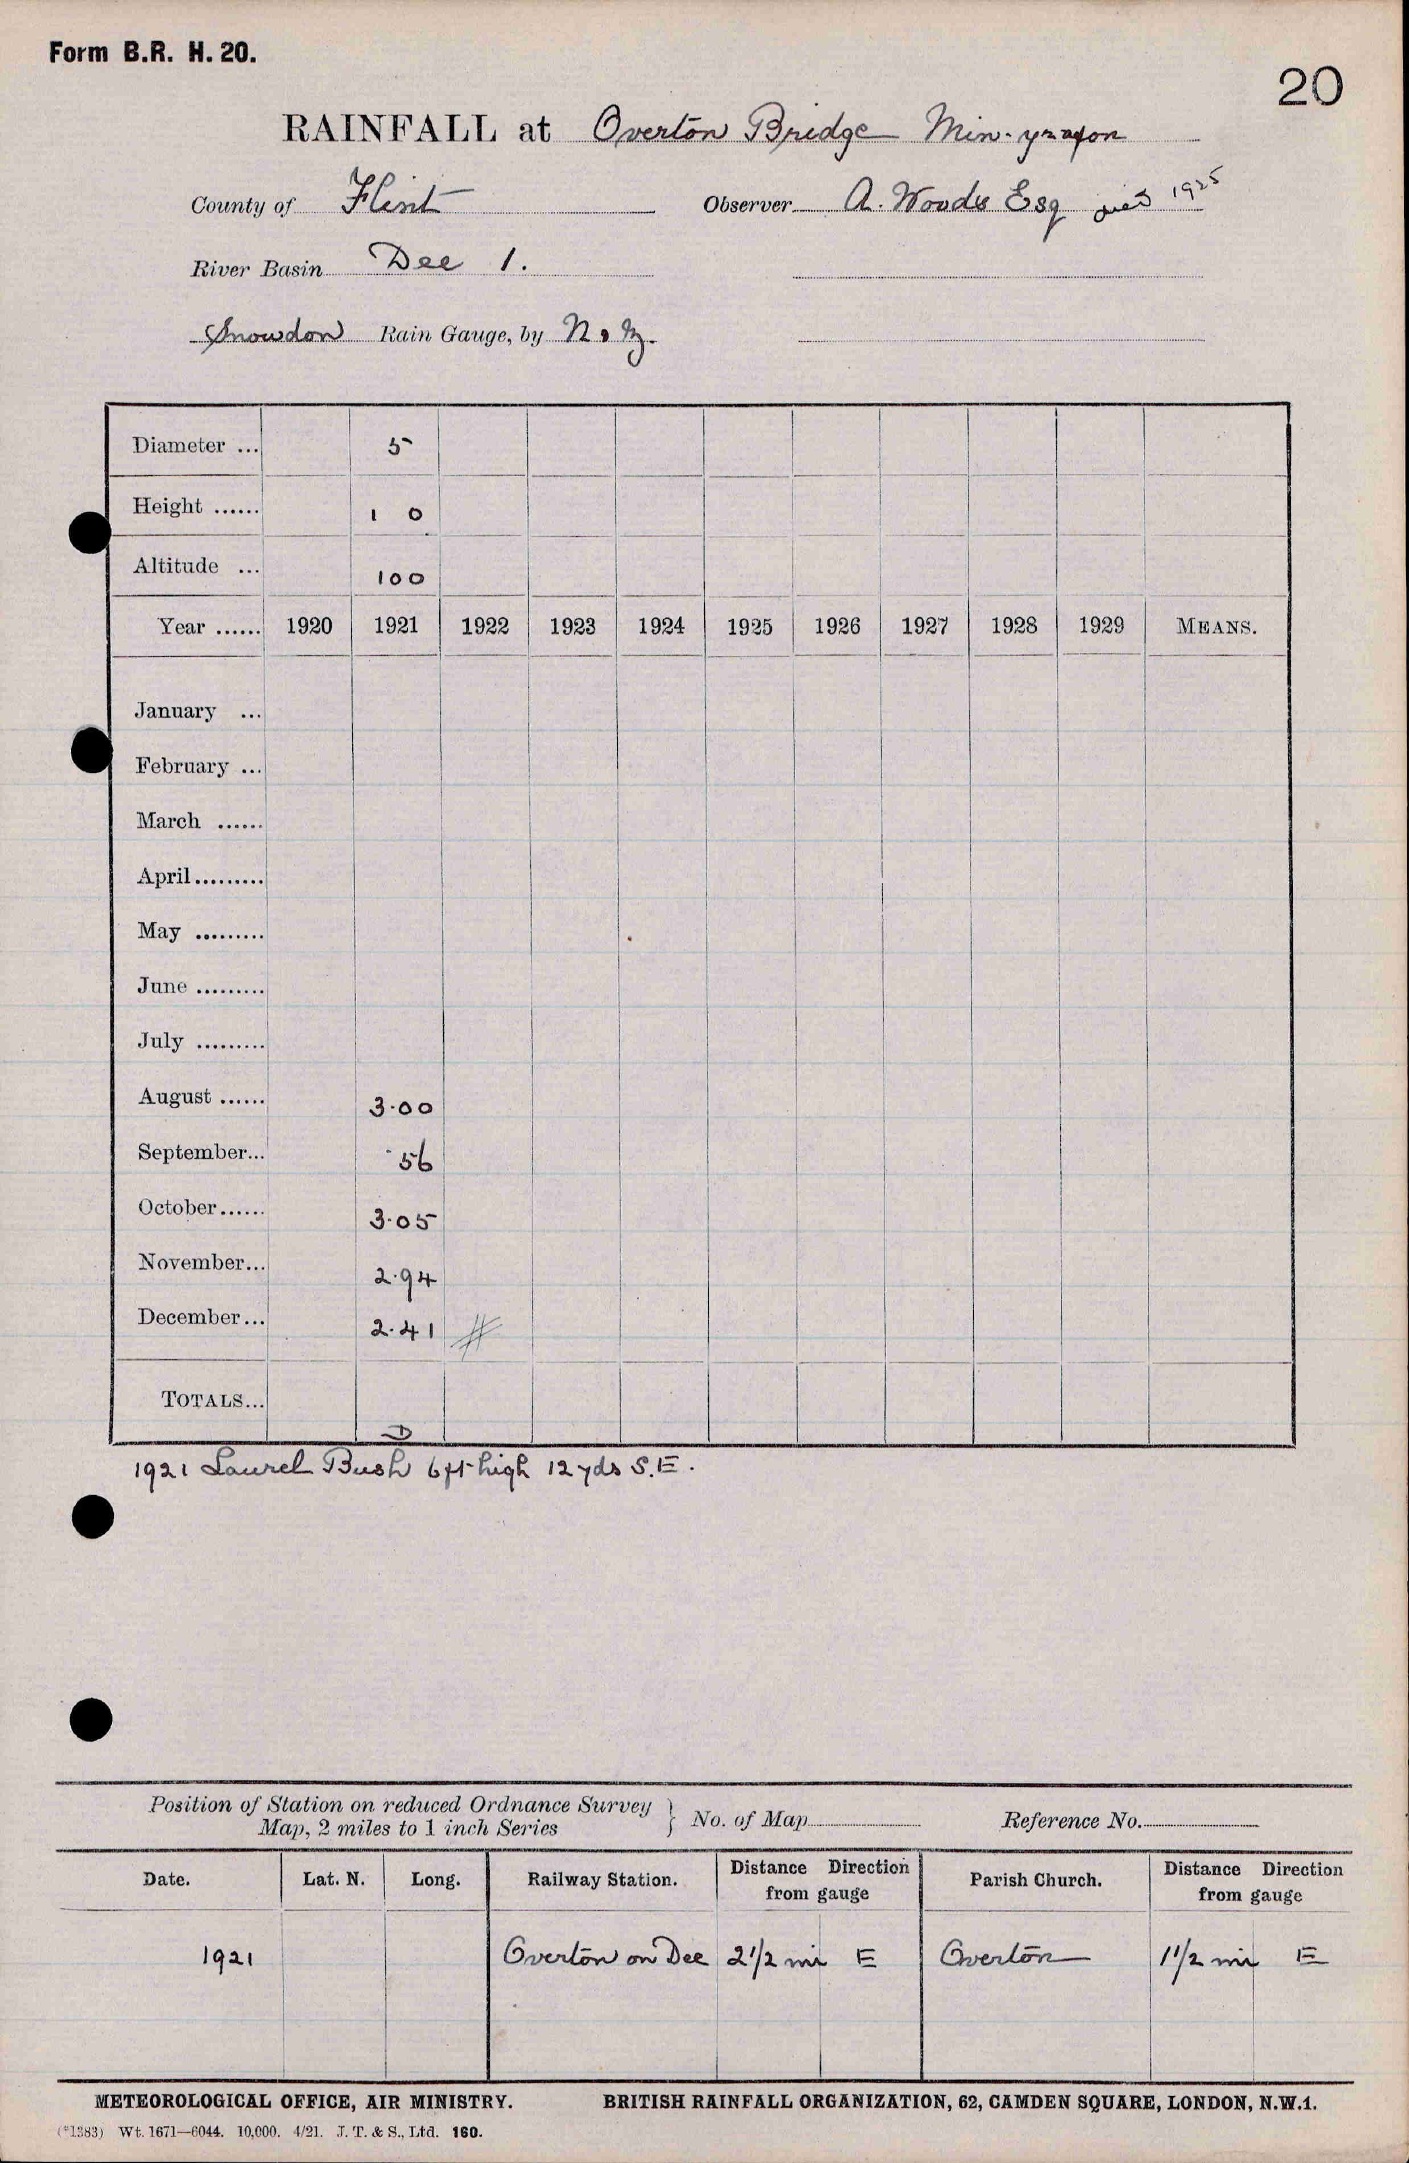 Form B.R. H. 20.
20
RAINFALL at Overton Bridge Min-yr-afon
County of Flint Observer A. Woods Esq died 1925
River Basin Dee 1.
Snowdon Rain Gauge, by N & Z.
Diameter ... 5
Height ...... 1 0
Altitude ... 100
Year ...... 1920 1921 1922 1923 1924 1925 1926 1927 1928 1929 MEANS.
January ...
February ...
March ......
April.........
May .........
June .........
July .........
August ...... 3.00
September... .56
October...... 3.05
November... 2.94
December... 2.41 #
TOTALS...
D
1921 Laurel Bush 6ft high 12 yds S.E.
Position of Station on reduced Ordnance Survey
Map, 2 miles to 1 inch Series } No. of Map Reference No.
Date. Lat. N. Long. Railway Station. Distance Direction from gauge Parish Church. Distance Direction from gauge
1921 Overton on Dee 2 1/2 mi E Overton 1 1/2 mi E
METEOROLOGICAL OFFICE, AIR MINISTRY. BRITISH RAINFALL ORGANIZATION, 62, CAMDEN SQUARE, LONDON, N.W.1.
(*1383) Wt. 1671—6044. 10,000. 4/21. J. T. & S., Ltd. 160.